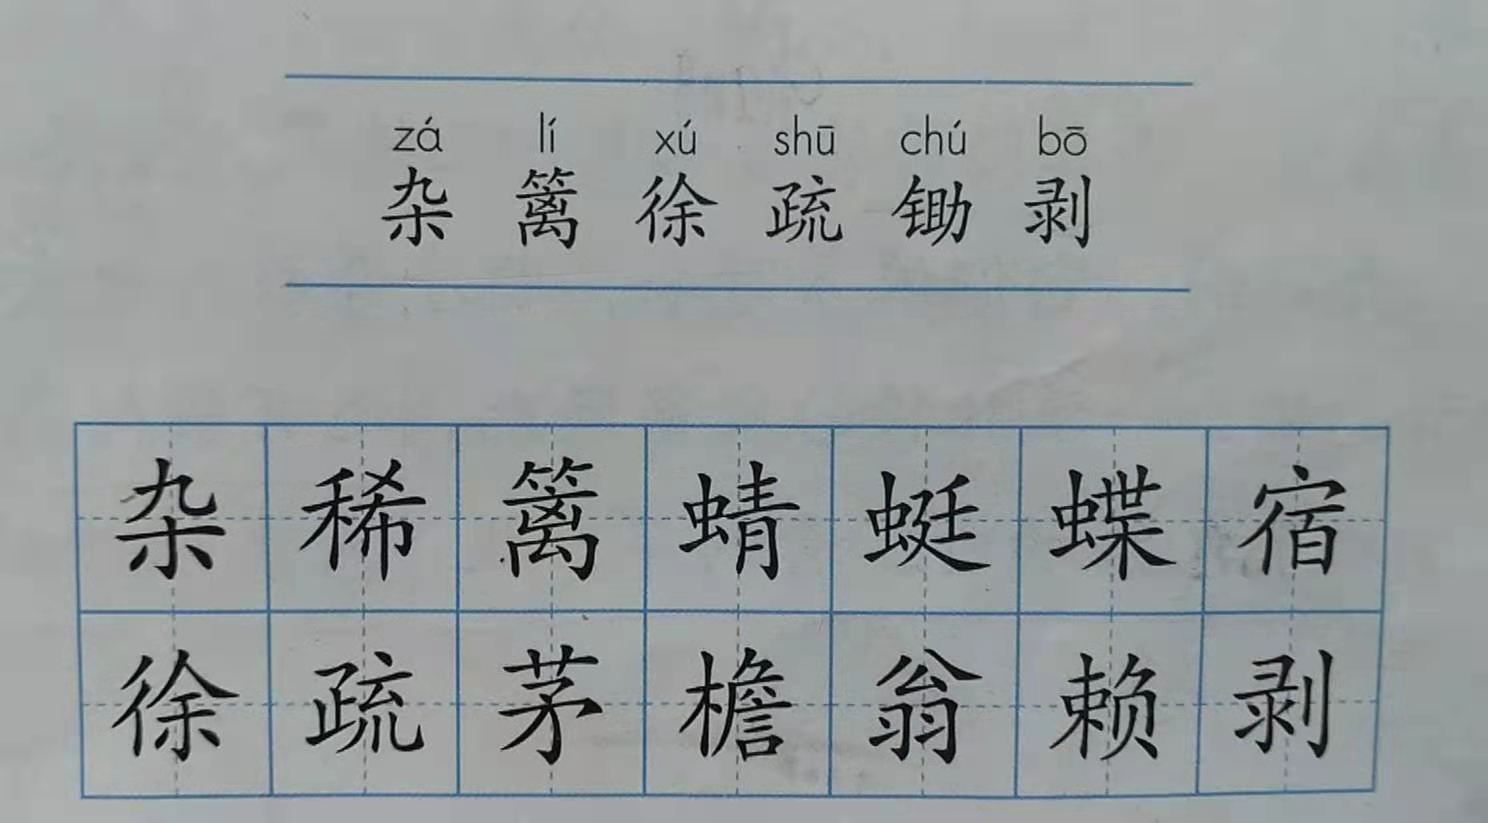 zá lí xú shū chú bō
杂 篱 徐 疏 锄 剥
杂 稀 篱 蜻 蜓 蝶 宿
徐 疏 茅 檐 翁 赖 剥